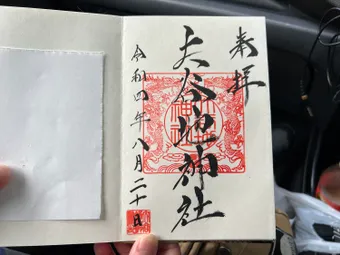 奉拝
大谷地神社
令和四年八月二十日